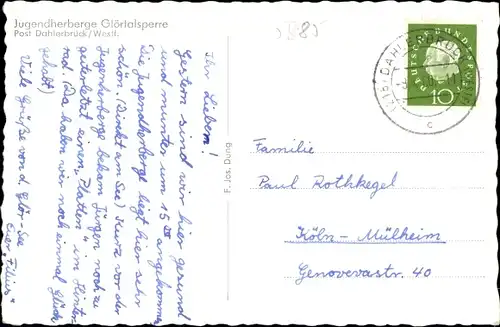 Jugendherberge Glörtalsperre
Post Dahlerbrück/Westf.
85
Ihr Lieben!
Gestern sind wir hier gesund
und munter um 15 angekommen.
Die Jugendherberge liegt hier sehr
schön. (Direkt am See) Kurz vor der
Jugendherberge bekam Jürgen noch zu
guterletzt einen "Platten" im Hinter-
rad. (Da haben wir noch einmal Glück
gehabt)
Viele Grüße von d. Glör-See
Euer
F. Jos. Dung
DAHLERBRÜCK
c
DEUTSCHE BUNDESPOST
10
Familie
Paul Rothkegel
Köln-Mülheim
Genovevastr. 40